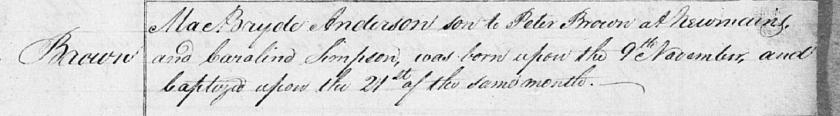 MacBryde Anderson son to Peter Brown at Newmains,
Brown and Caralind Simpson, was born upon the 9th November, and
baptized upon the 21st of the same month.